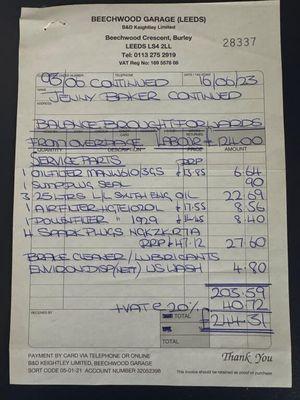 BEECHWOOD GARAGE (LEEDS)
B&D Keightley Limited
Beechwood Crescent, Burley
LEEDS LS4 2LL
Tel: 0113 275 2919
VAT Reg No: 169 5578 08
28337
TELEPHONE
03/06 CONTINUED 16/06/23
NAME
JENNY BAKER CONTINUED
ADDRESS
BALANCE BROUGHT FORWARDS
FROM OVERPAGE LABOUR £ 124.00
QUANTITY DESCRIPTION PRICE AMOUNT
SERVICE PARTS RRP
1 OIL FILTER MANN 610/3GS £13.85 6.64
1 SUMP PLUG SEAL 90
3.25 LTRS L/L SYNTH ENG OIL 22.69
1 AIRFILTER £17.55 8.56
1 POLLEN FILTER 1929 8.40
4 SPARK PLUGS NGK ZKR7A
RRP £47.12 27.60
BRAKE CLEANER/LUBRICANTS
ENVIRON DISP (NETT) U/S WASH 4.80
203.59
+ VAT @ 20% 40.72
RECEIVED BY
TOTAL 244.31
TOTAL
PAYMENT BY CARD VIA TELEPHONE OR ONLINE
B&D KEIGHTLEY LIMITED, BEECHWOOD GARAGE
SORT CODE 05-01-21 ACCOUNT NUMBER 32052398
Thank You
This invoice should be retained as proof of purchase.